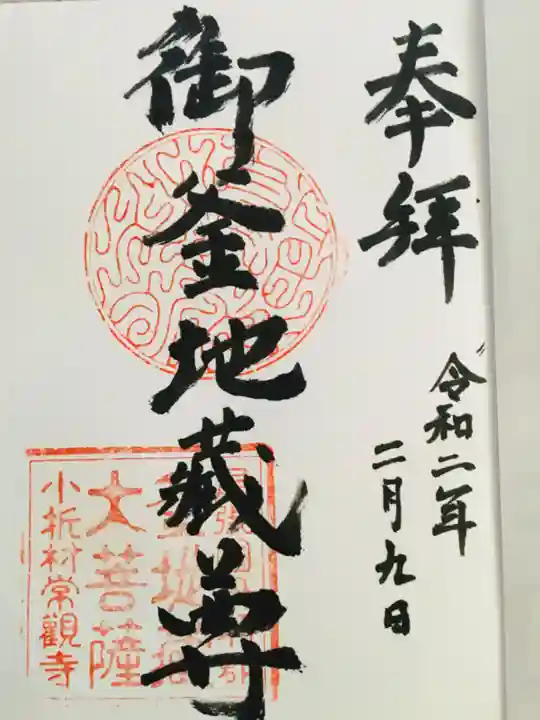 奉拜
令和二年
二月九日
御釜地藏尊
大菩薩
小折村常觀寺